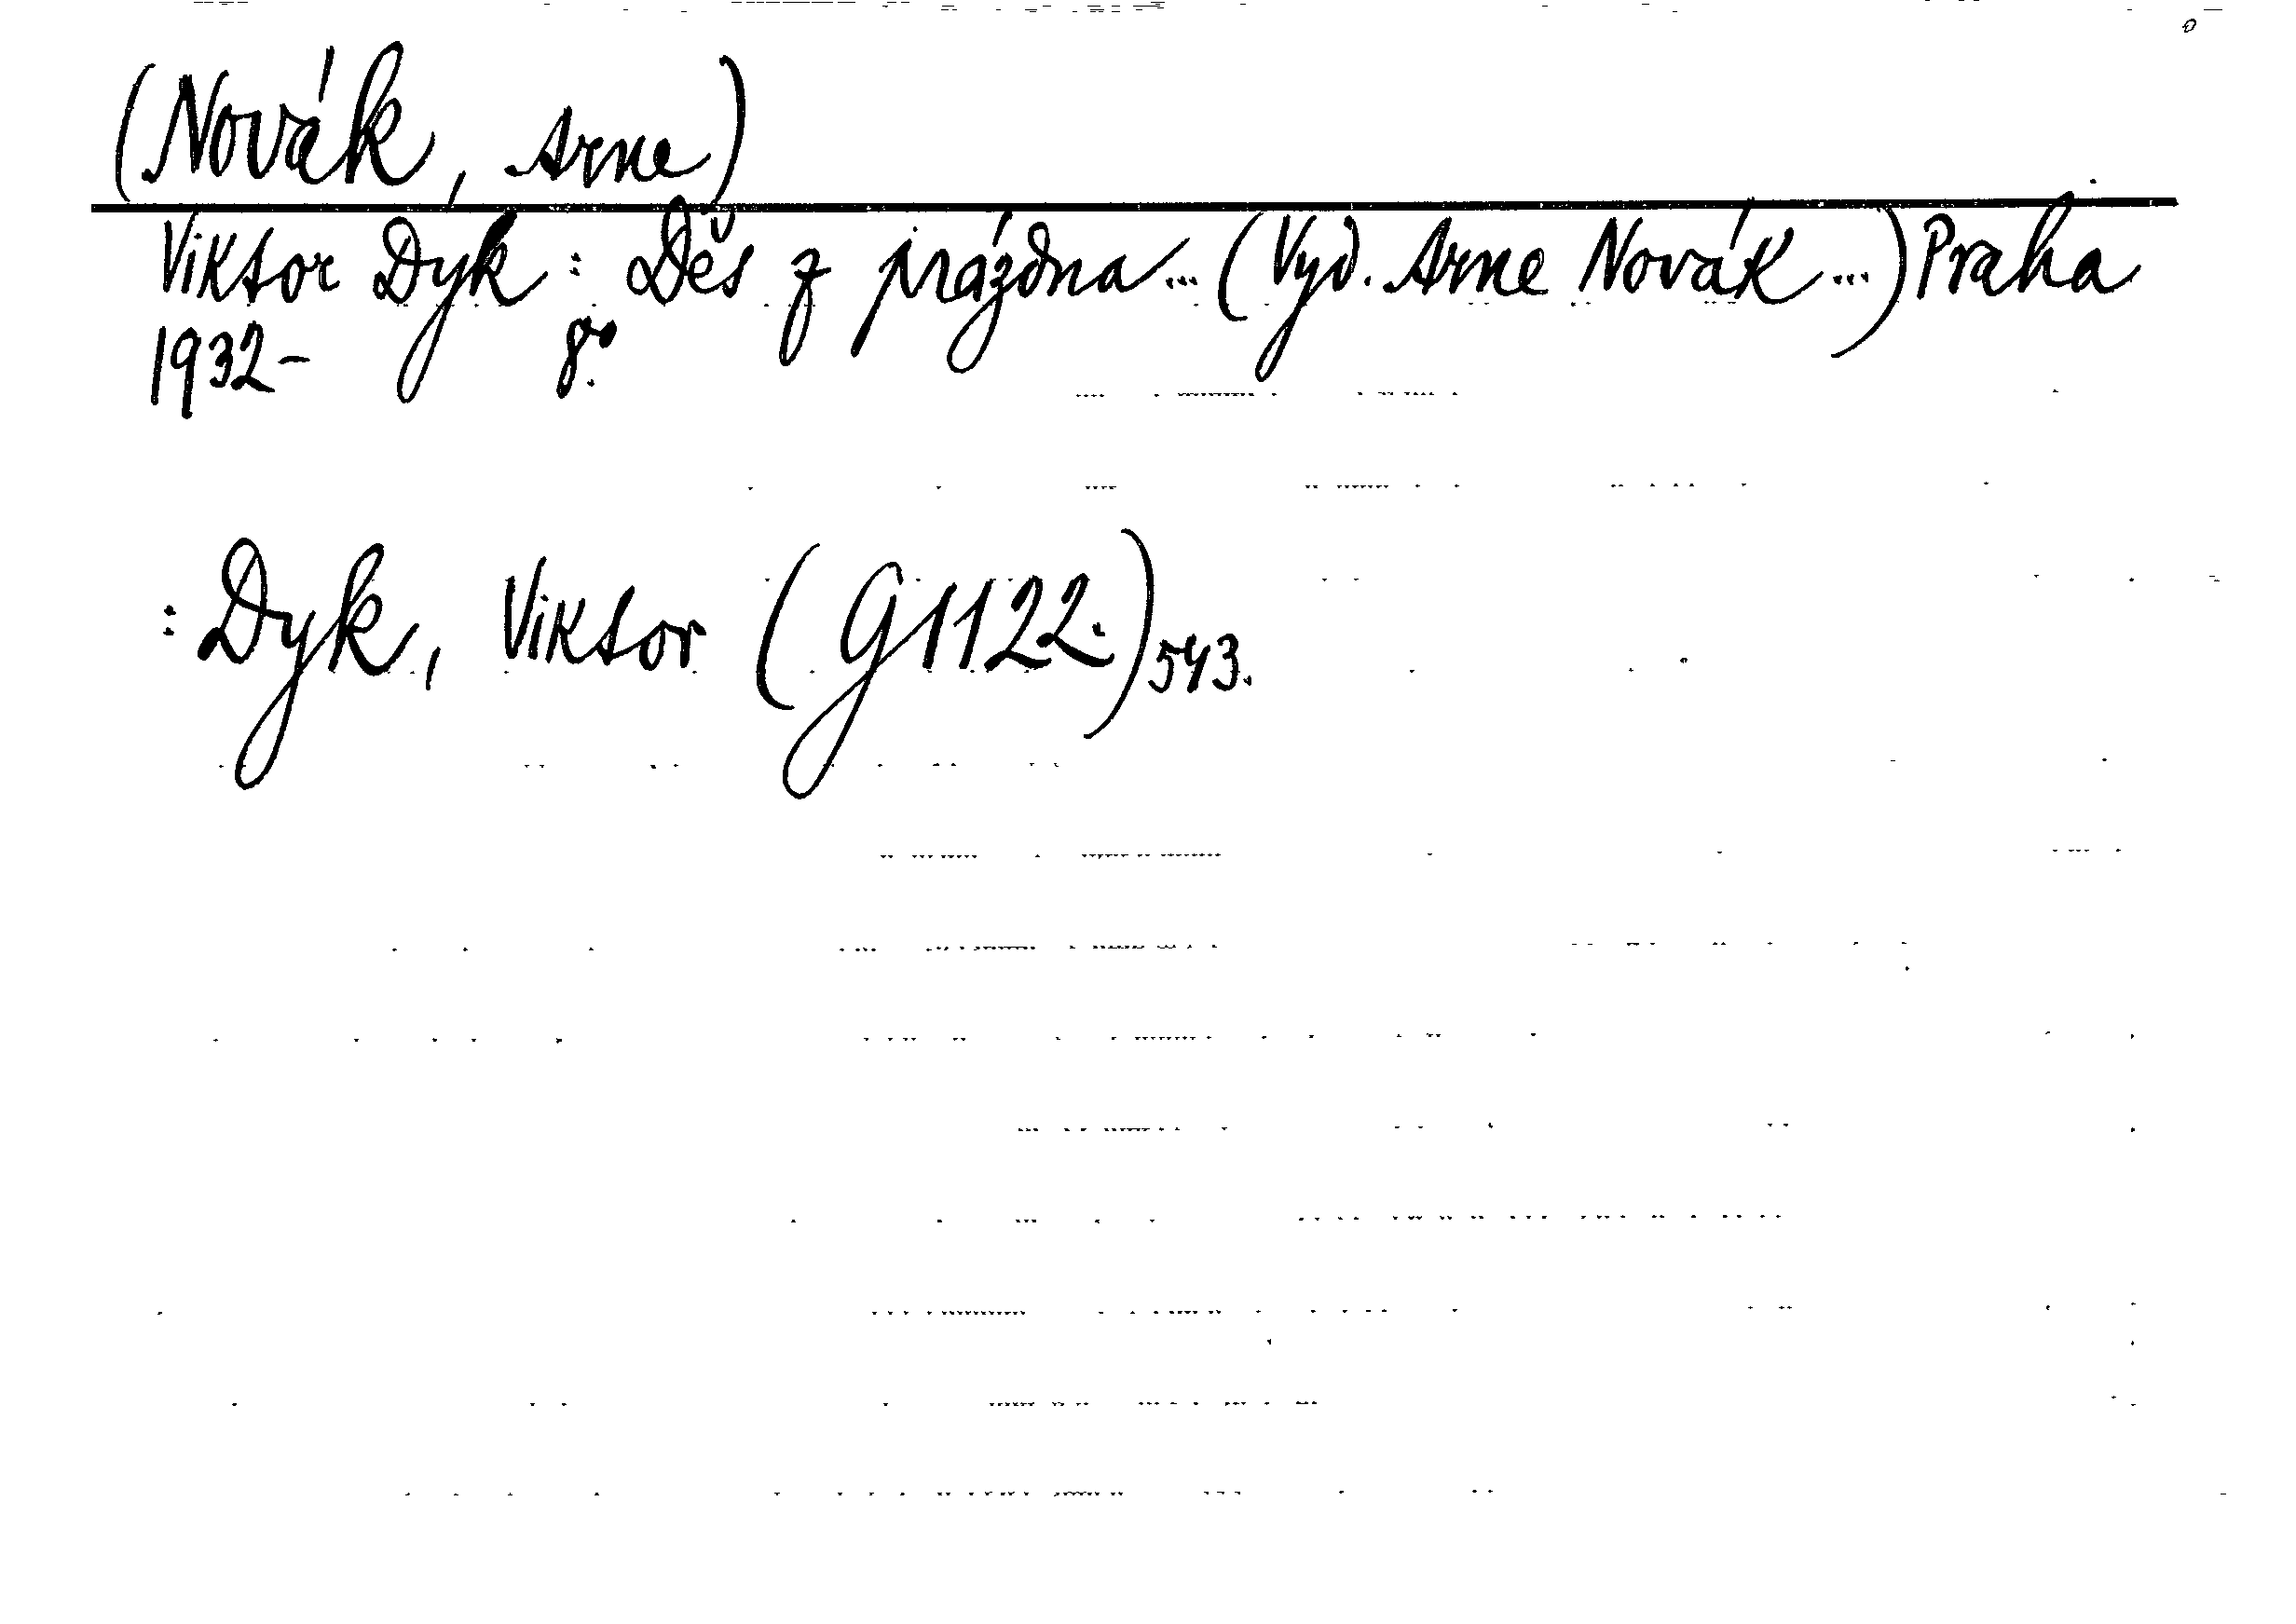 (Novák, Arne)
Viktor Dyk: Děs z prázdna... (Vyd. Arne Novák...) Praha
1932- 8°.
: Dyk, Viktor (G1122.)543.